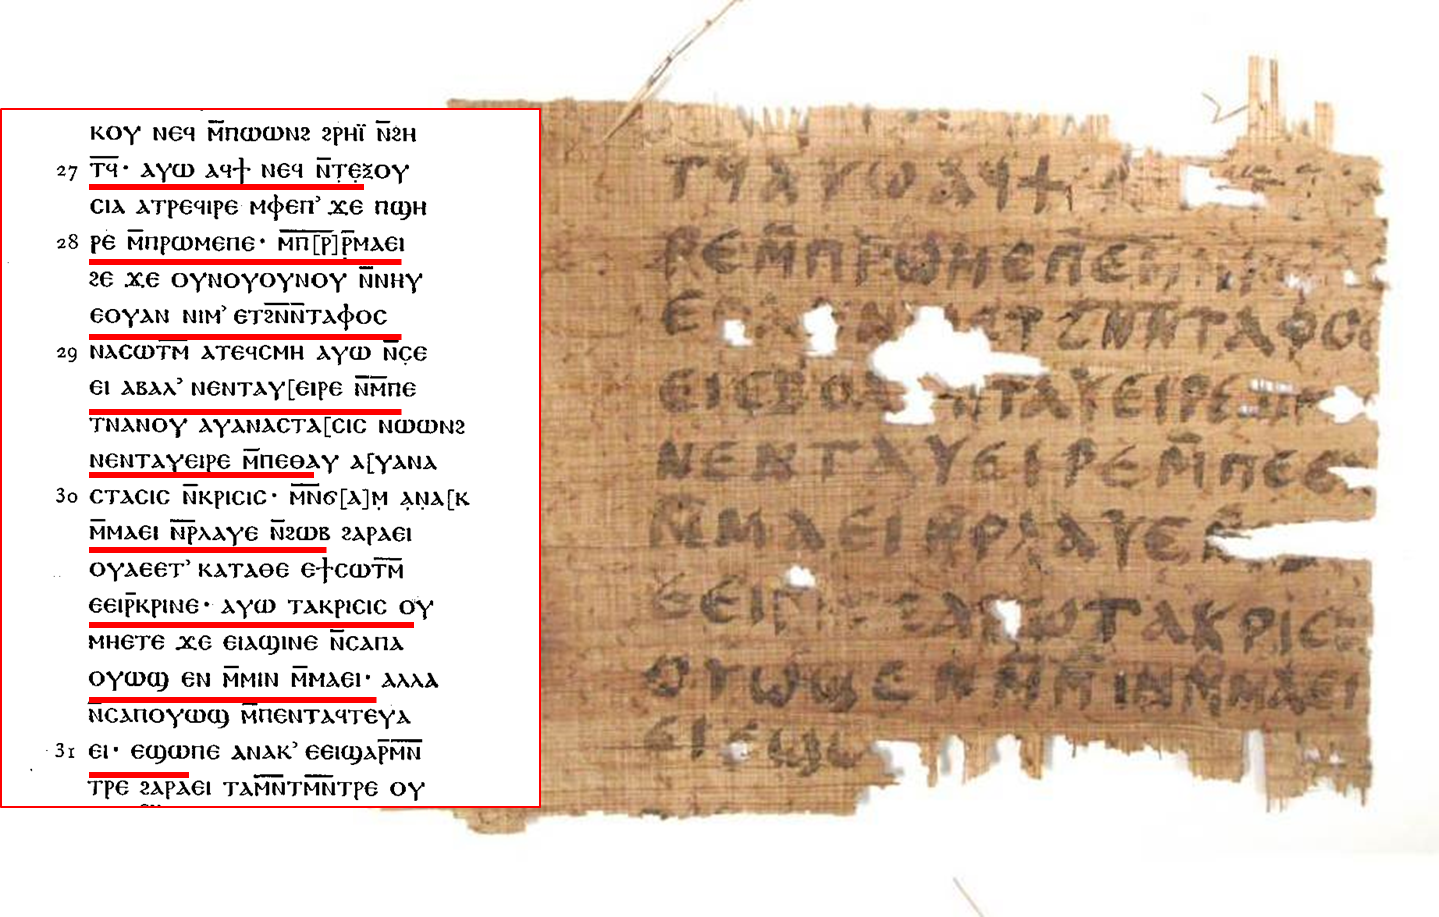 ⲕⲟⲩ ⲛⲉϥ ⲙ̅ⲡⲱⲱⲛϩ ϩⲣⲏⲓ̈ ⲛ̅ϩⲏ
27 ⲧ̅ϥ̅· ⲁⲩⲱ ⲁϥϯ ⲛⲉϥ ⲛ̅ⲧ̣ⲉ̣ⲝⲟⲩ
ⲥⲓⲁ ⲁⲧⲣⲉϥⲓⲣⲉ ⲙⲫⲉⲡ’ ϫⲉ ⲡϣⲏ
28 ⲣⲉ ⲙ̅ⲡⲣⲱⲙⲉⲡⲉ· ⲙ̅ⲡ̅[ⲣ]ⲣ̅ⲙⲁⲉⲓ
ϩⲉ ϫⲉ ⲟⲩⲛⲟⲩⲟⲩⲛⲟⲩ ⲛ̅ⲛⲏⲩ
ⲉⲟⲩⲁⲛ ⲛⲓⲙ’ ⲉⲧϩ̅ⲛ̅ⲛ̅ⲧⲁⲫⲟⲥ
29 ⲛⲁⲥⲱⲧ̅ⲙ̅ ⲁⲧⲉϥⲥⲙⲏ ⲁⲩⲱ ⲛ̅ⲥ̣ⲉ
ⲉⲓ ⲁⲃⲁⲗ’ ⲛⲉⲛⲧⲁⲩ[ⲉⲓⲣⲉ ⲛ̅ⲙ̅ⲡⲉ
ⲧⲛⲁⲛⲟⲩ ⲁⲩⲁⲛⲁⲥⲧⲁ[ⲥⲓⲥ ⲛⲱⲱⲛϩ
ⲛⲉⲛⲧⲁⲩⲉⲓⲣⲉ ⲙ̅ⲡⲉⲑⲁⲩ ⲁ[ⲩⲁⲛⲁ
30 ⲥⲧⲁⲥⲓⲥ ⲛ̅ⲕⲣⲓⲥⲓⲥ· ⲙ̅ⲛ̅ϭ[ⲁ]ⲙ̣ ⲁ̣ⲛ̣ⲁ[ⲕ
ⲙ̅ⲙⲁⲉⲓ ⲛ̅ⲣ̅ⲗⲁⲩⲉ ⲛ̅ϩⲱⲃ ϩⲁⲣⲁⲉⲓ
ⲟⲩⲁⲉⲉⲧ’ ⲕⲁⲧⲁⲑⲉ ⲉϯⲥⲱⲧ̅ⲙ̅
ⲉⲉⲓⲣ̅ⲕⲣⲓⲛⲉ· ⲁⲩⲱ ⲧⲁⲕⲣⲓⲥⲓⲥ ⲟⲩ
ⲙⲏⲉⲧⲉ ϫⲉ ⲉⲓⲁϣⲓⲛⲉ ⲛ̅ⲥⲁⲡⲁ
ⲟⲩⲱϣ ⲉⲛ ⲙ̅ⲙⲓⲛ ⲙ̅ⲙⲁⲉⲓ· ⲁⲗⲗⲁ
ⲛ̅ⲥⲁⲡⲟⲩⲱϣ ⲙ̅ⲡⲉⲛⲧⲁϥⲧⲉⲩⲁ
31 ⲉⲓ· ⲉϣⲱⲡⲉ ⲁⲛⲁⲕ’ ⲉⲉⲓϣⲁⲣ̅ⲙ̅ⲛ̅
ⲧⲣⲉ ϩⲁⲣⲁⲉⲓ ⲧⲁⲙ̅ⲛ̅ⲧⲙ̅ⲛ̅ⲧⲣⲉ ⲟⲩ
ⲧϥⲁⲩⲱⲁϥϯ
ⲣⲉⲙ̅ⲡⲣⲱⲙⲉⲡⲉⲙ
ⲉⲧϩⲛⲛⲧⲁⲫⲟⲥ
ⲉⲓⲉⲃⲟⲗ ⲛⲧⲁⲩⲉⲓⲣⲉ
ⲛⲉⲛⲧⲁⲩⲉⲓⲣⲉⲙ̅ⲡⲉⲑ
ⲙ̅ⲙⲁⲉⲓⲛⲣⲗⲁⲩⲉ
ⲉⲉⲓⲣ ⲧⲁⲕⲣⲓⲥ
ⲟⲩⲱϣⲉⲛⲙ̅ⲙⲓⲛⲙ̅ⲙⲁⲉⲓ
ⲉⲓⲉϣⲱ